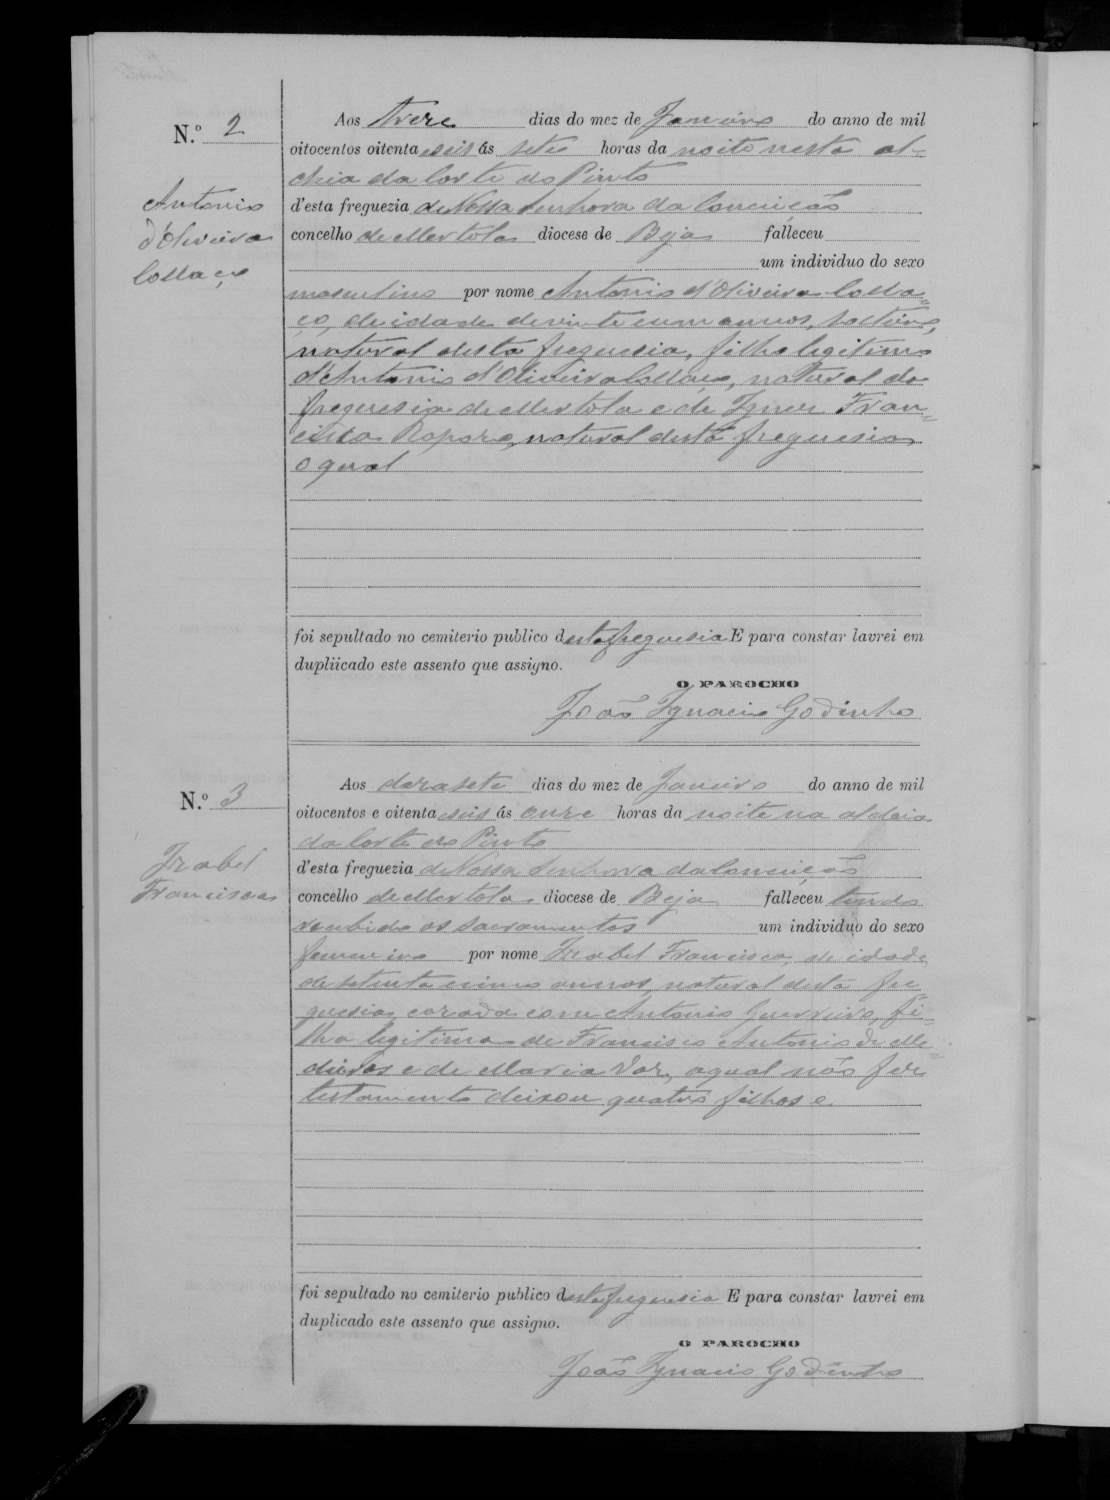 N.º 2
Antonio
d'Oliveira
Collaço
Aos treze dias do mez de Janeiro do anno de mil
oitocentos oitenta e seis ás sete horas da noite nesta al-
deia da Corte do Pinto
d'esta freguezia de Nossa Senhora da Conceição
concelho de Mertola diocese de Beja falleceu
um individuo do sexo
masculino por nome Antonio d'Oliveira Colla=
ço, de idade de vinte e um annos, solteiro,
natural desta freguesia, filho legitimo
d'Antonio d'Oliveira Collaço, natural da
freguesia de Mertola e de Ignez Fran=
cisca natural desta freguesia
o qual
foi sepultado no cemiterio publico desta freguesia E para constar lavrei em
dupliicado este assento que assigno.
O PAROCHO
João Ignacio Godinho
N.º 3
Izabel
Francisca
Aos dezasete dias do mez de Janeiro do anno de mil
oitocentos e oitenta e seis ás onze horas da noite na aldeia
da Corte do Pinto
d'esta freguezia de Nossa Senhora da Conceição
concelho de Mertola diocese de Beja falleceu tendo
recebido os sacramentos um individuo do sexo
femenino por nome Izabel Francisca, de idade
de setenta e cinco annos, natural desta fre=
guesia, cazada com Antonio Guerreiro, fi=
lha legitima de Francisco Antonio de Me=
deiros e de Maria Vaz, a qual não fez
testamento deixou quatro filhos e
foi sepultado no cemiterio publico desta freguesia E para constar lavrei em
duplicado este assento que assigno.
O PAROCHO
João Ignacio Godinho